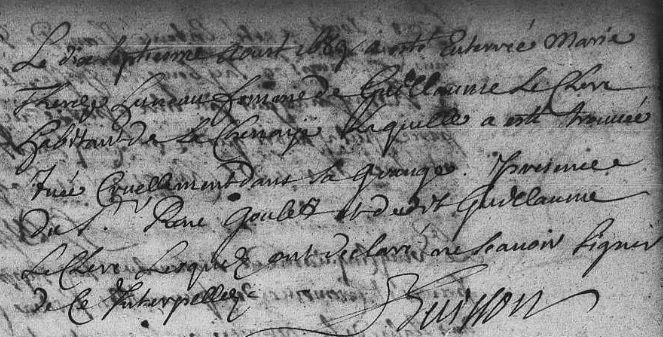 Le dix septieme Aoust 1689 a esté Enterrée Marie
Therese Luneau femme de Guillaume Le Clerc
habitant de la Chenaye laquelle a esté trouvée
Tuée Cruellement dans sa grange. Presence
Du Sr René Goulet et dudt Guillaume
Le Clerc Lesquelz ont declaré ne scavoir signer
de ce Interpellez
Buisson